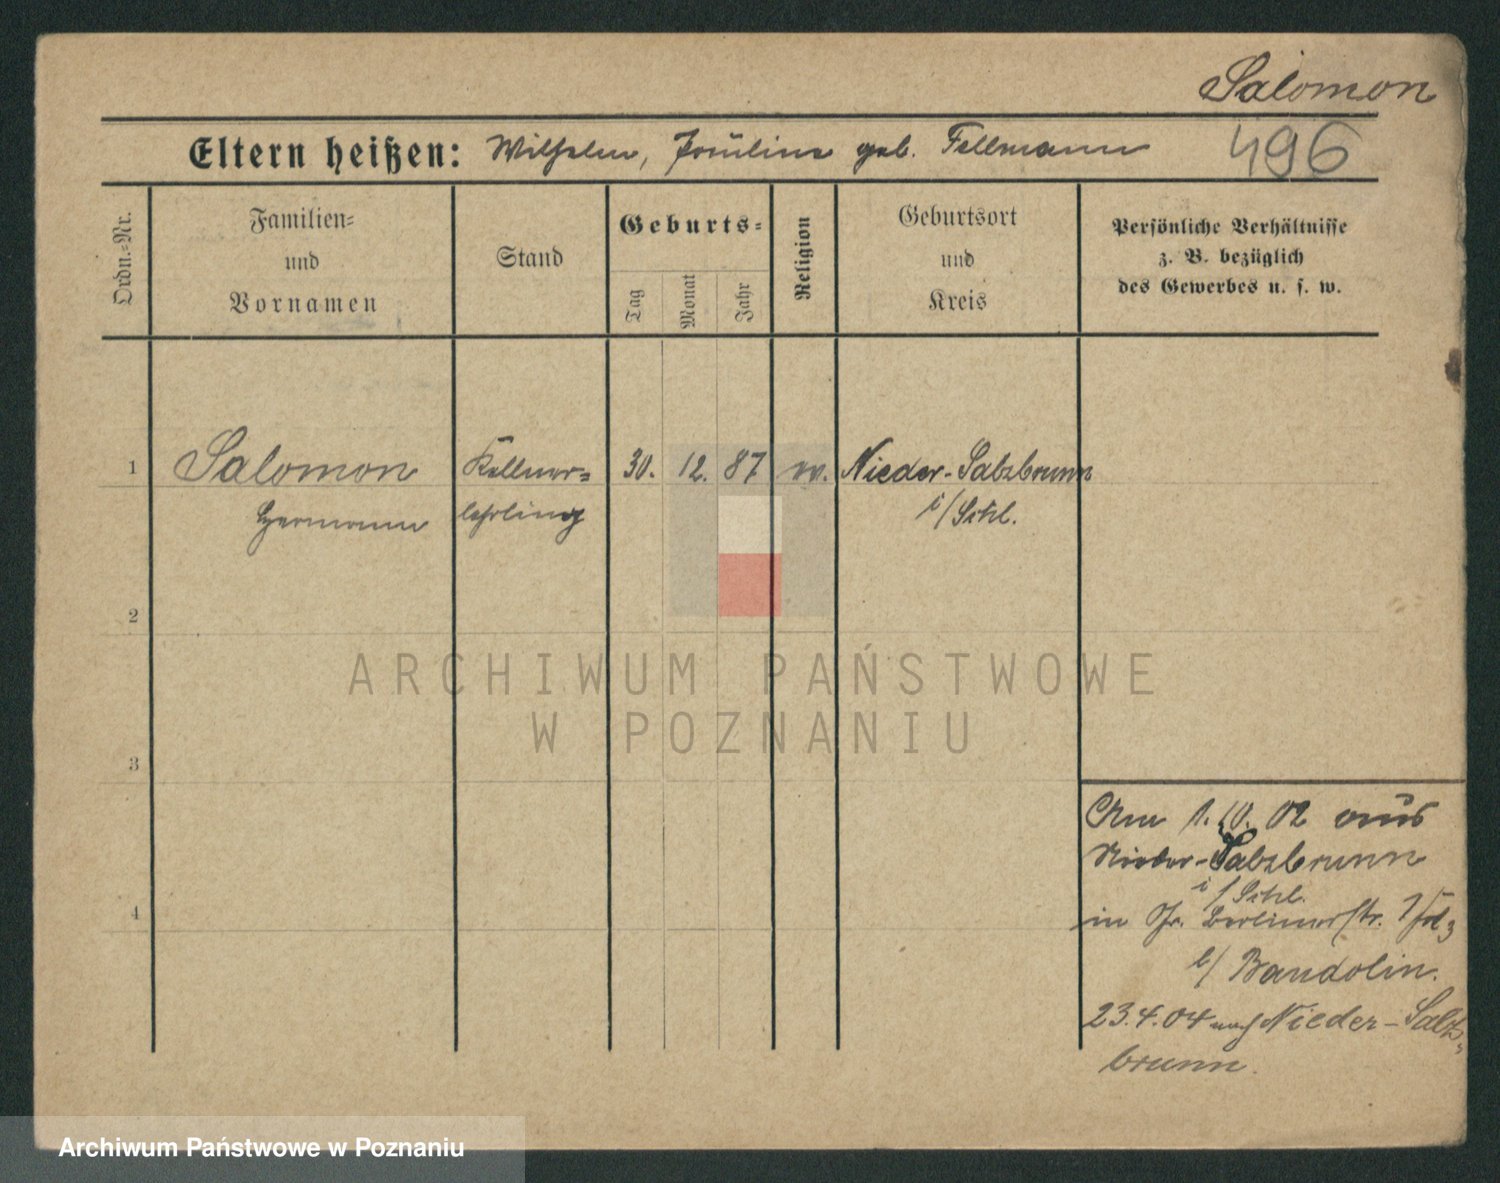 Salomon
Eltern heißen: Wilhelm, Pauline geb. Fellmann
496
Ordn.-Nr.
Familien-
und
Vornamen
Stand
Geburts-
Tag
Monat
Jahr
Religion
Geburtsort
und
Kreis
Persönliche Verhältnisse
z. B. bezüglich
des Gewerbes u. s. w.
1 Salomon Kellner= 30. 12. 87 Nieder-Salzbrunn
Hermann lehrling i/Schl.
2
3
4
Am 1.10.02 aus
Nieder-Salzbrunn
i/Schl.
in Berlinerstr.
b/ Bandolin.
23.4.04 nach Nieder-Salz-
brunn.
ARCHIWUM PAŃSTWOWE
W POZNANIU
Archiwum Państwowe w Poznaniu